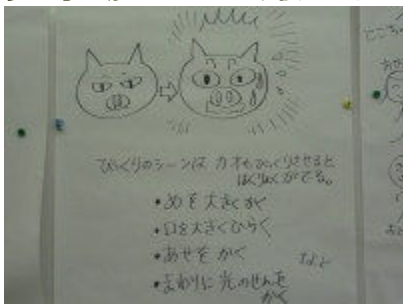 びっくりのシーンは カオもびっくりさせると
はくりょくがでる。
・めを大きくかく
・口を大きくひらく
・あせを かく
など
・まわりに 光のせんを
かく